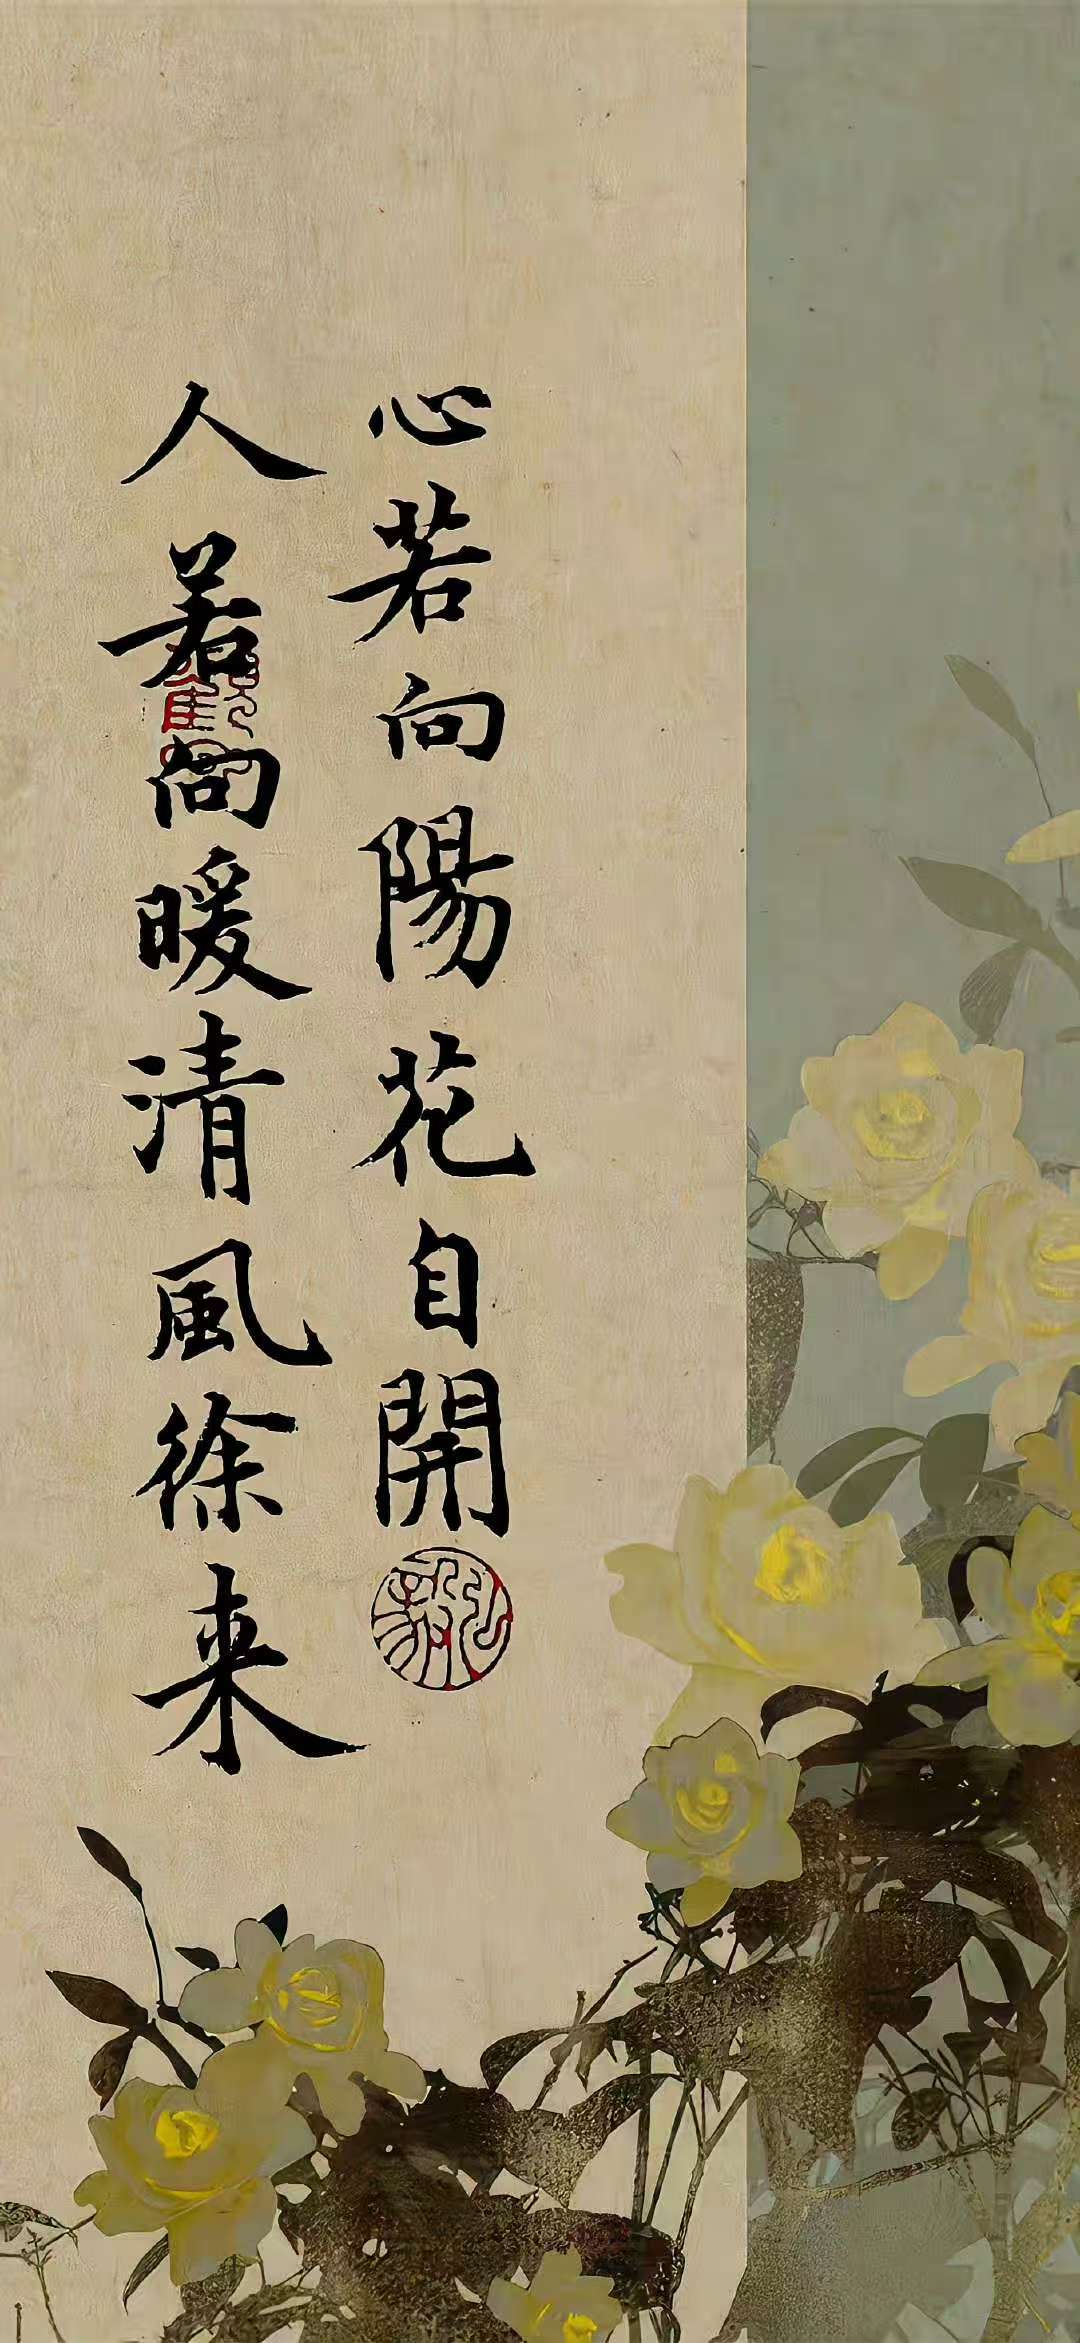 心若向陽花自開
人若向暖清風徐来